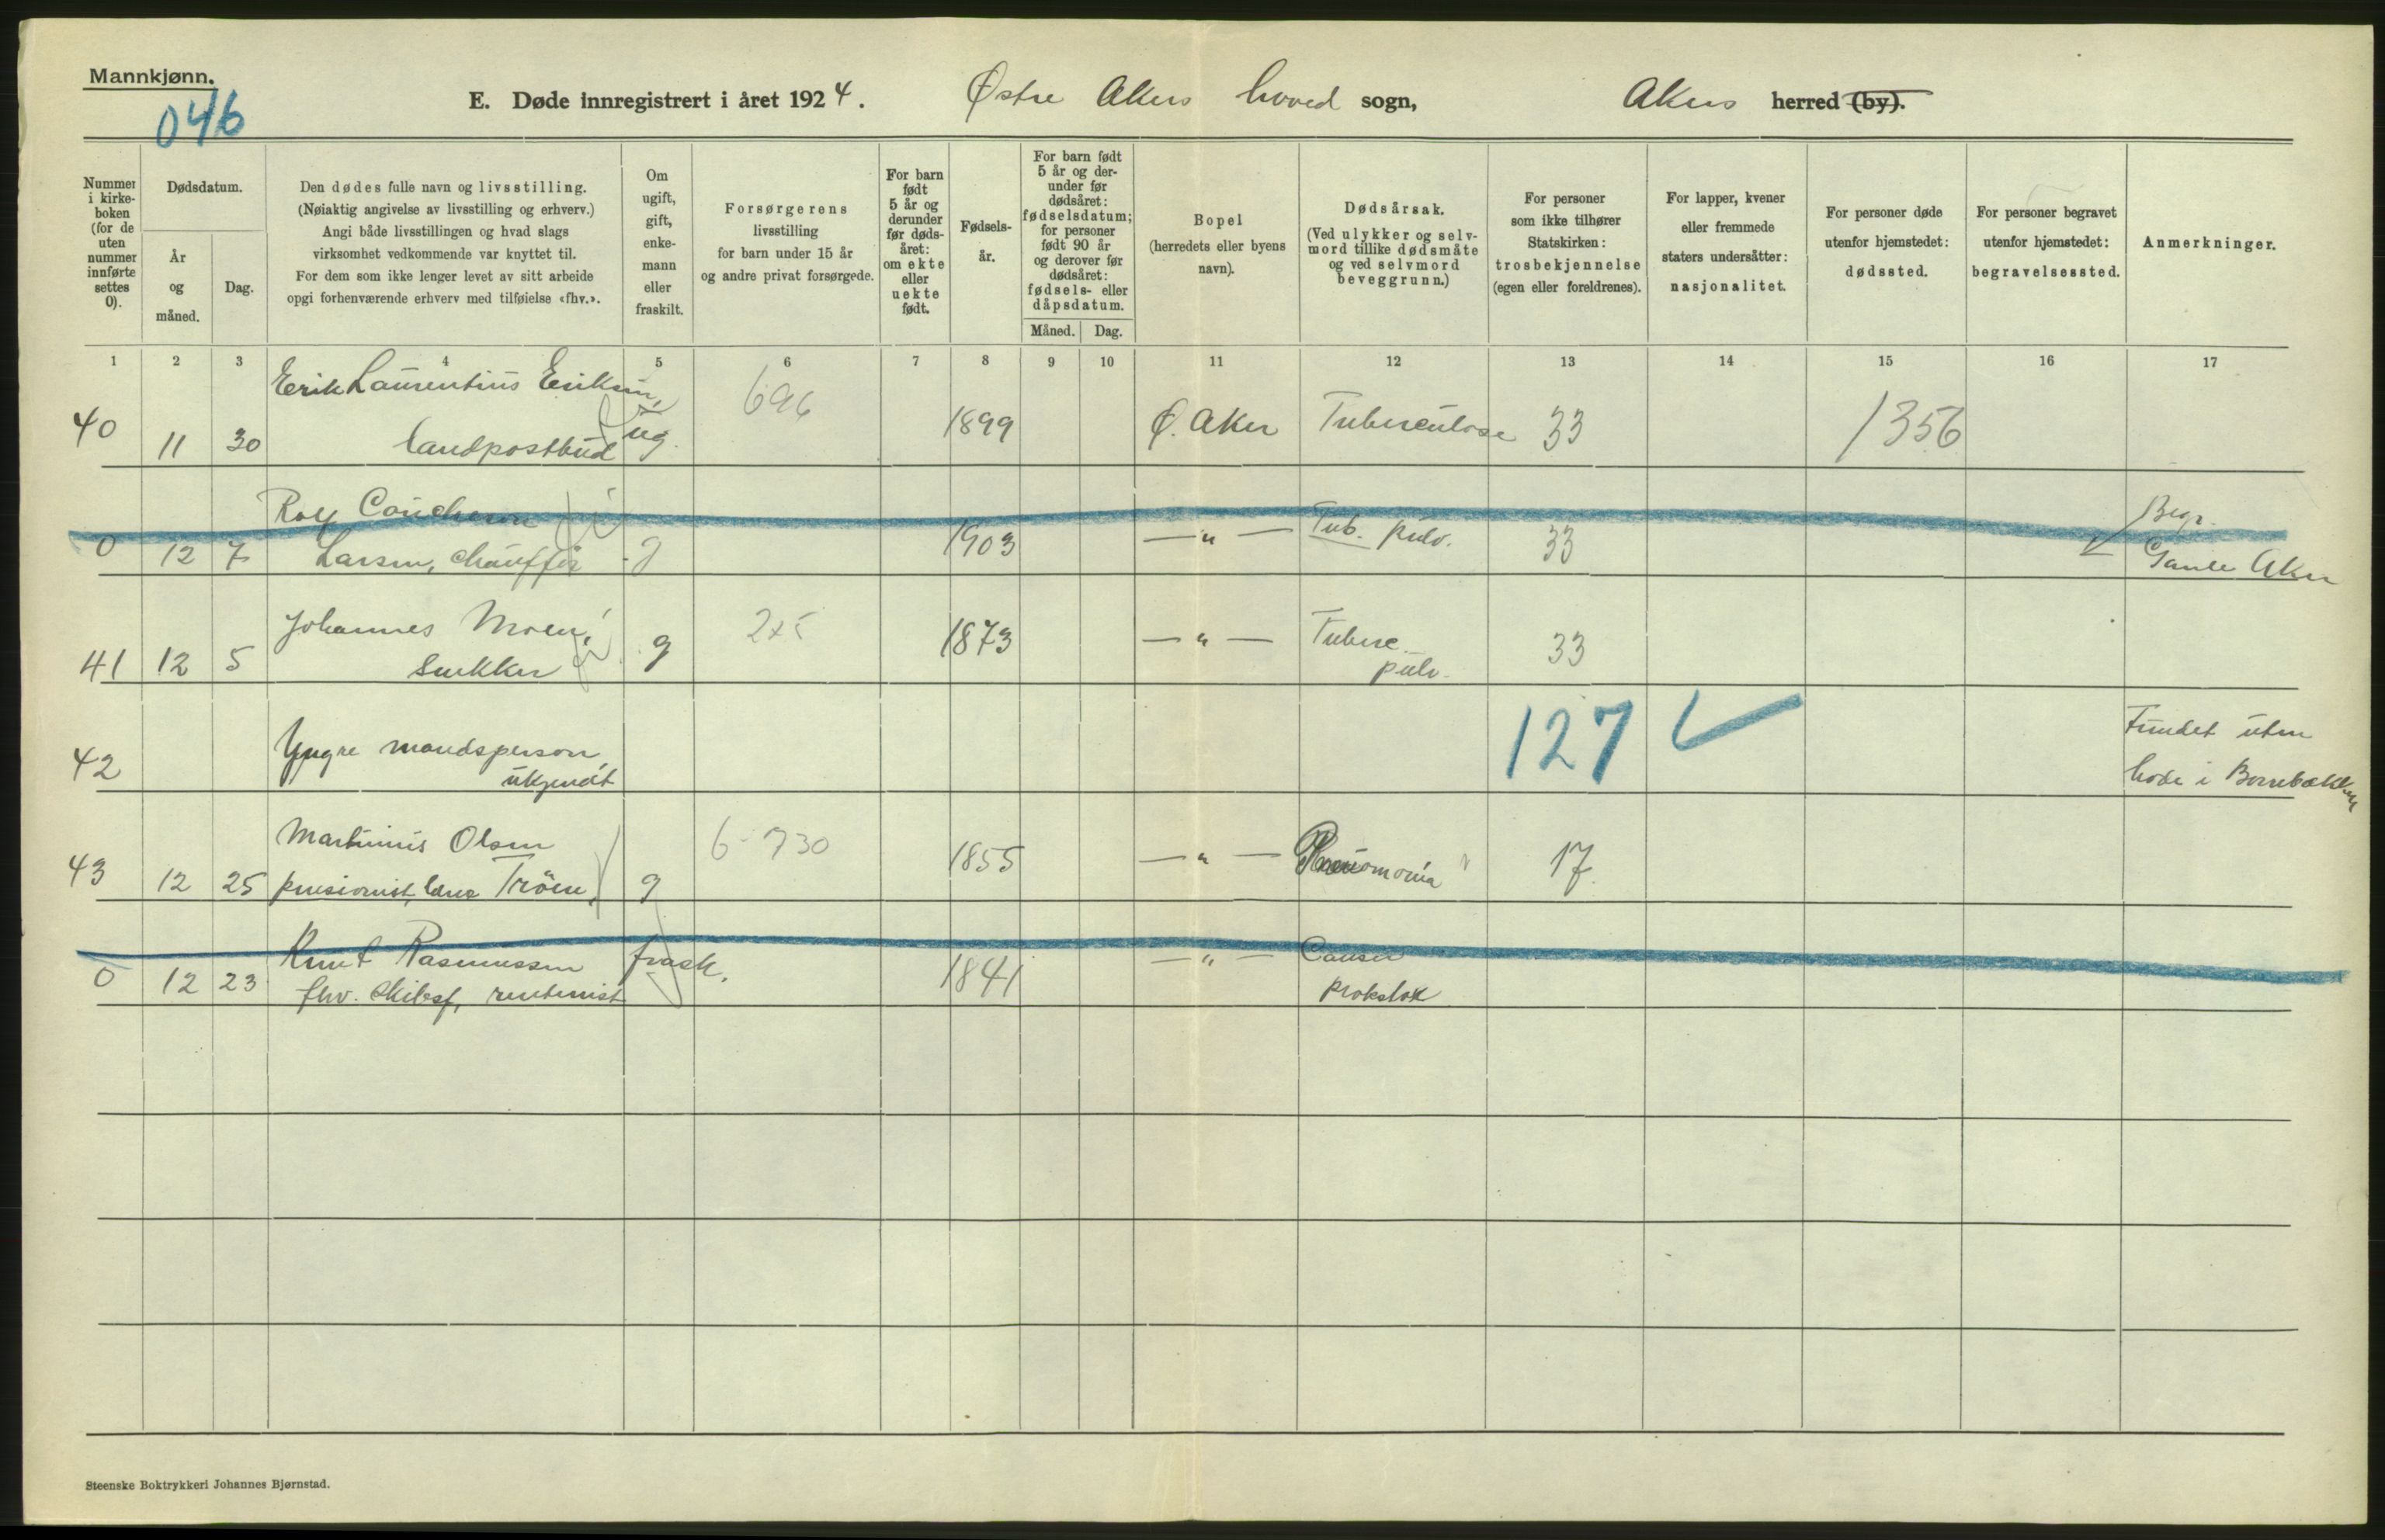 Mannkjønn.
046
E. Døde innregistrert i året 1924. Østre Akers hoved sogn, Akers herred (by).
Nummer i kirke-boken (for de uten nummer innførte settes 0).
Dødsdatum.
År og måned.
Dag.
Den dødes fulle navn og livsstilling.
(Nøiaktig angivelse av livsstilling og erhverv.)
Angi både livsstillingen og hvad slags
virksomhet vedkommende var knyttet til.
For dem som ikke lenger levet av sitt arbeide
opgi forhenværende erhverv med tilføielse «fhv.».
Om ugift, gift, enke-mann eller fraskilt.
Forsørgerens
livsstilling
for barn under 15 år
og andre privat forsørgede.
For barn født 5 år og derunder før døds-året: om ekte eller uekte født.
Fødsels-år.
For barn født 5 år og der-under før dødsåret: fødselsdatum; for personer født 90 år og derover før dødsåret: fødsels- eller dåpsdatum.
Måned. Dag.
Bopel
(herredets eller byens
navn).
Dødsårsak.
(Ved ulykker og selv-
mord tillike dødsmåte
og ved selvmord
beveggrunn.)
For personer
som ikke tilhører
Statskirken:
trosbekjennelse
(egen eller foreldrenes).
For lapper, kvener
eller fremmede
staters undersåtter:
nasjonalitet.
For personer døde
utenfor hjemstedet:
dødssted.
For personer begravet
utenfor hjemstedet:
begravelsessted.
Anmerkninger.
1 2 3 4 5 6 7 8 9 10 11 12 13 14 15 16 17
Erik Laurentius Eriksen,
40 11 30 landpostbud ug. 696 1899 Ø. Aker Tuberculose 33 1356
Rolf
0 12 7 Larsen, chauffør g 1903 — " — Tub. pulv. 33 Begr.
Gamle Aker
Johannes Moen,
41 12 5 Snekker g 1873 — " — Tuberc. pulv. 33
42 Yngre mandsperson,
ukjendt 127 Fundet uten
hode i
Martinius Olsen
43 12 25 pensionist, g 6-730 1855 — " — Pneumonia 17.
Knut Rasmussen
0 12 23 fhv. skibsf, rentenist frask. 1841 — " — Cancer
Steenske Boktrykkeri Johannes Bjørnstad.